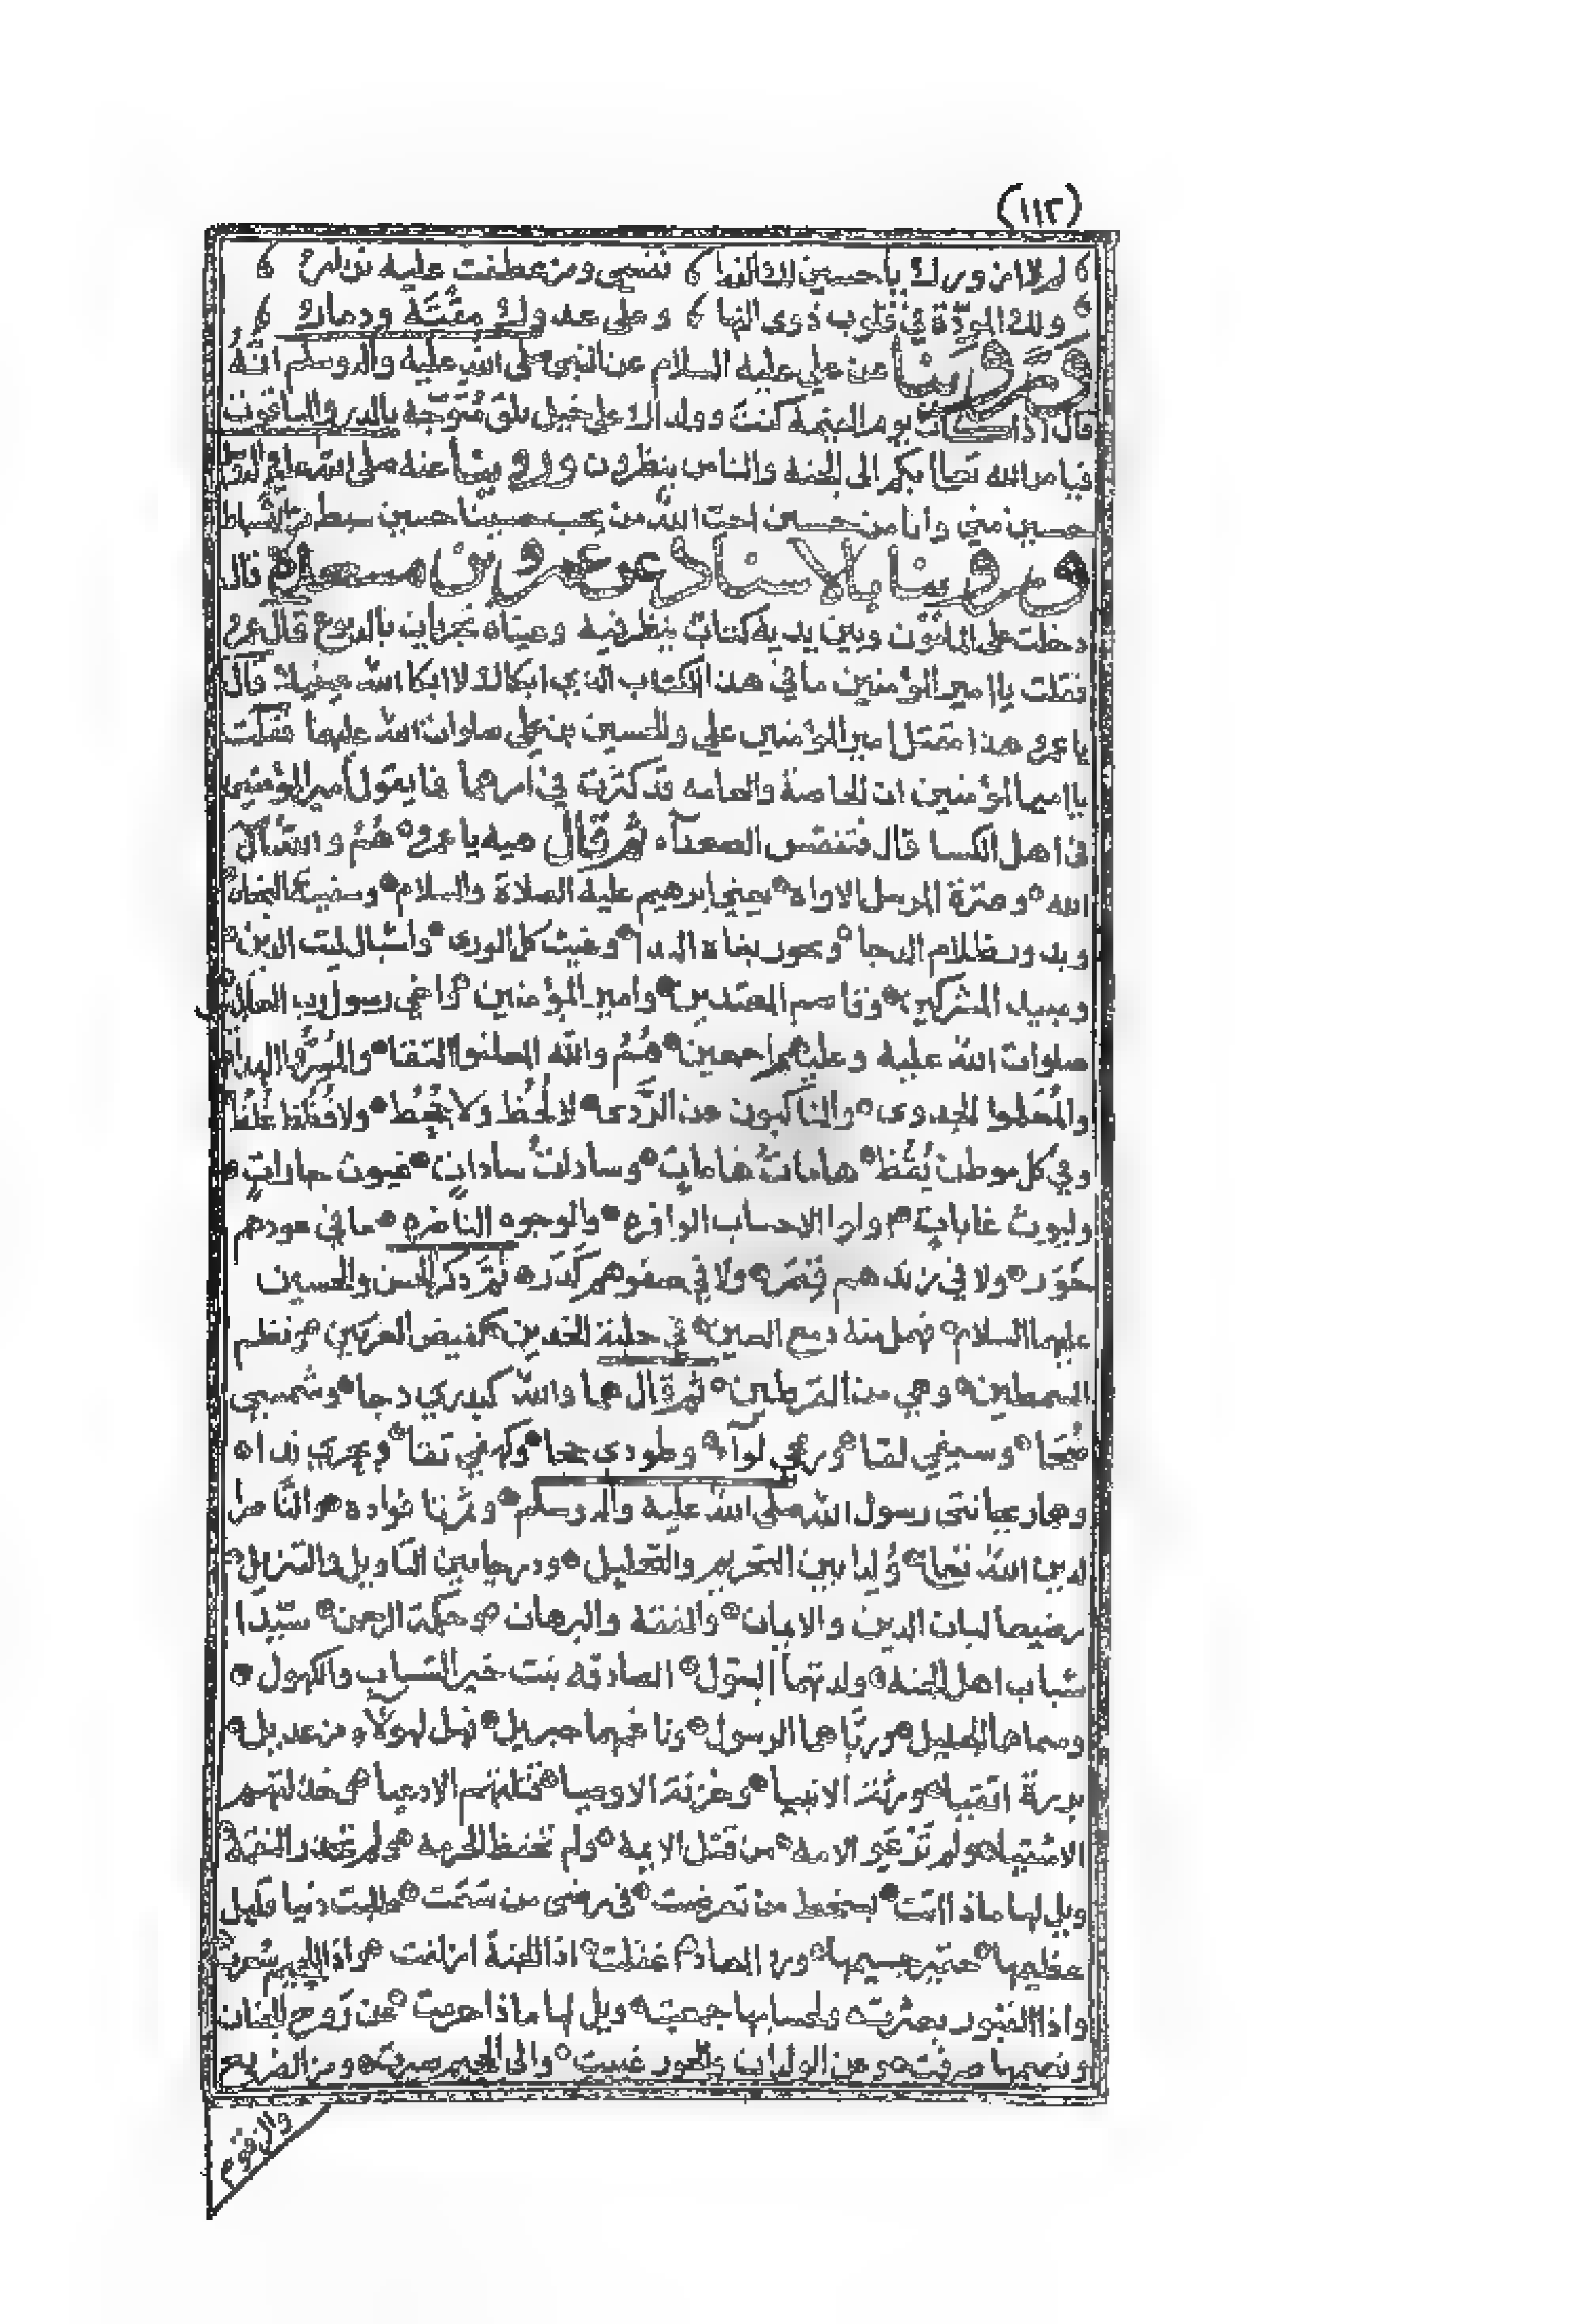 (١١٢)
لزلازمن ورك يا حسين لك الفدا نفسي ومن عطفت عليه
ولك المودّة في قلوب ذوي النها وعلى عدوك مقته ودمارك
وروينا عن علي عليه السلام عن النبي صلى الله عليه واله وسلم انه
قال اذا كان يوم القيمة كنت وولدك على خيل بلق متوّجه بالدر والياقوت
فيامر الله تعالى بكم الى الجنه والناس ينظرون وروينا عنه صلى الله عليه واله
حسين مني وانا من حسين احبّ الله من يحب حسينا حسين سبط من الاسباط
وروينا بالاسناد عن عمرو بن مسعده قال
دخلت على المامون وبين يديه كتاب ينظر فيه وعيناه تجريان بالدموع قال عمرو
فقلت يا امير المؤمنين ما في هذا الكتاب الذي ابكاك لا ابكا الله عينيك قال
يا عمرو هذا مقتل امير المؤمنين علي والحسين بن علي صلوات الله عليهما فقلت
يا امير المؤمنين ان الخاصة والعامه قد كثرت في امرهما فما يقول امير المؤمنين
في اهل الكسا قال فتنفس الصعدآء ثم قال هيه يا عمرو هُمُ والله آل
الله وعترة المرسل الاواه يعني ابرهيم عليه الصلاة والسلام وسفينة النجاه
وبدور ظلام الدجا وبحور بغاة الندا وغيث كل الورى واشبال ليث الدين
ومبيد المشركين وقاصم المعتدين وامير المؤمنين واخي رسول رب العالمين
صلوات الله عليه وعليهم اجمعين هُمُ والله المعلنوا التقا والمُسرّوا الهدا
والمُعلموا الجدوى والناكبون عن الردى لا لُحُظ ولا جُحُظ ولا فُظُظ غُلُظ
وفي كل موطن يُقُظ هامات هامات وسادات سادات غيوث جارات
وليوث غابات اولوا الاحساب الوافره والوجوه الناضره ما في عودهم
خَوَر ولا في زندهم قِصَر ولا في صفوهم كَدَر ثم ذكر الحسن والحسين
عليهما السلام فهمل منه دمع العين في حلبة الخدين كفيض الغربين ونظم
السمطين وهي من القرطين ثم قال هما والله كبدري دجا وشمسي
ضُحَا وسيفي لقا ورمحي لوآء وطودي حجا وكهفي تقا وبحري ندا
وهما ريحانتي رسول الله صلى الله عليه واله وسلم وثمرتا فؤاده والناصرا
لدين الله تعالى وُلدا بين التحريم والتحليل ودرجا بين التاويل والتنزيل
رضيعا لبان الدين والايمان والفقه والبرهان وحكمة الرحمن سيّدا
شباب اهل الجنه ولدتهما البتول الصادقه بنت خير الشباب والكهول
وسماهما الجليل وربّاهما الرسول وناغاهما جبريل فهل لهولاء من عديل
بررة اتقيا ورثة الانبيا وخزنة الاوصيا قتلتهم الادعيا وخذلتهم
الاشقيا ولم تَرْعَوِ الامه من قتل الايمه ولم تحفظ الحرمه ولم تحذر النقمه
ويل لها ماذا اتت بسخط من تعرضت في رضى من سَعَت طلبت دنيا قليل
عظيمها حقير جسيمها وزاد المعاد اغفلت اذا الجنة ازلفت واذا الجحيم سُعرت
واذا القبور بعثرت ولحسابها جمعت ويل لها ماذا حرمت عن رَوح الجنان
ونعيمها صرفت وعن الولدان والحور غيبت والى الجحيم صيرت ومن الضريع
والزقوم